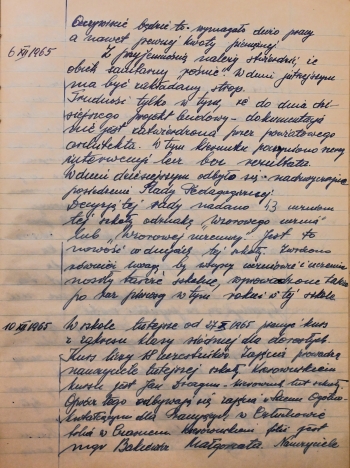 Oczywiście będzie to wymagało dużo pracy
a nawet pewnej kwoty pieniędzy.
6 XII 1965 Z przyjemnością należy stwierdzić, że
obiekt sanitarny rośnie. W dniu jutrzejszym
ma być zakładany strop.
Trudność tylko w tym, że do dnia dzi-
siejszego projekt budowy - dokumentacja
nie jest zatwierdzona przez powiatowego
architekta. W tym kierunku poczyniono
interwencji lecz bez rezultatu.
W dniu dzisiejszym odbyło się nadzwyczajne
posiedzenie Rady Pedagogicznej.
Decyzją tej rady nadano 43 uczniom
tej szkoły odznakę "wzorowego ucznia"
lub "wzorowej uczennicy". Jest to
nowość w dziejach tej szkoły. Zwrócono
również uwagę by wszyscy uczniowie i uczennice
nosili tarcze szkolne, wprowadzone także
po raz pierwszy w tym roku w tej szkole.
10 XII 1965 W szkole tutejszej od 27 X 1965 pracuje kurs
z zakresu klasy siódmej dla dorosłych.
Kurs liczy uczestników. Zajęcia prowadzą
nauczyciele tutejszej szkoły. Kierownikiem
kursu jest Jan kierownik tut. szkoły.
Oprócz tego odbywają się zajęcia Liceum Ogólno-
kształcącym dla Pracujących w
filia w Czarnem. Kierownikiem filii jest
mgr Małgorzata. Nauczyciele